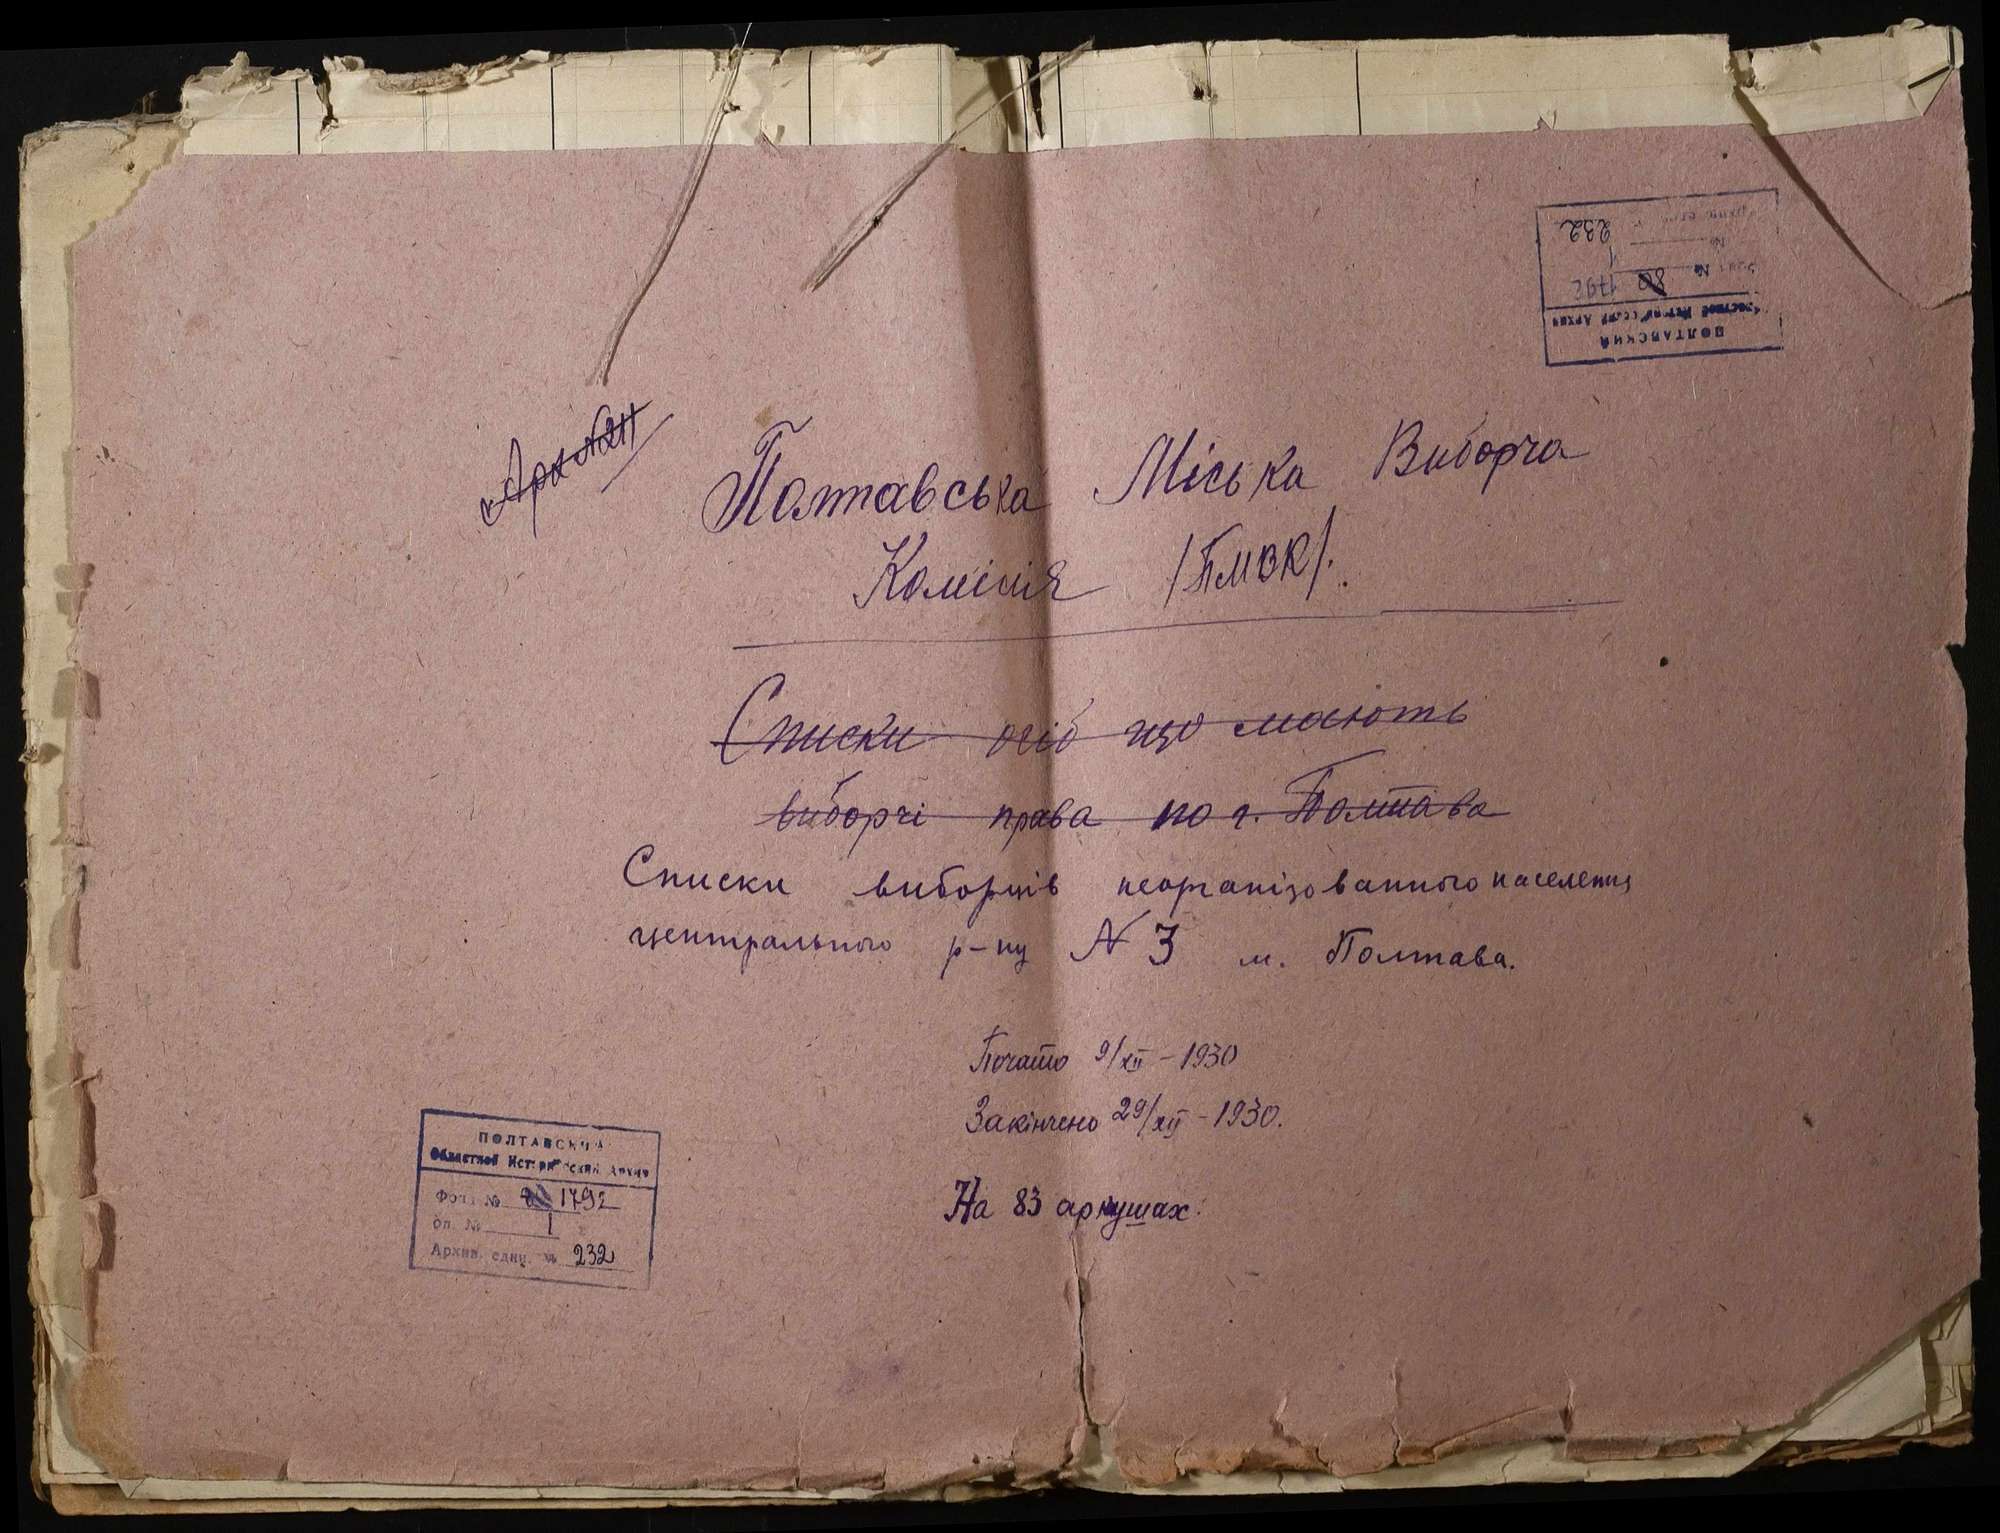 ПОЛТАВСКИЙ
Исторический Архив
№ 80 1792
№ 1
232
Арк №211
Полтавська Міська Виборча
Комісія /ПМВК/.
Списки осіб що мають
виборчі права по г. Полтава
Списки виборців неорганізованного населення
центрального р-ну N 3 м. Полтава.
Почато 9/XII - 1930
Закінчено 29/XII - 1930.
На 83 аркушах.
ПОЛТАВСКИЙ
Областной Исторический Архив
Фонд № 1792
оп. № 1
Архив. един. № 232